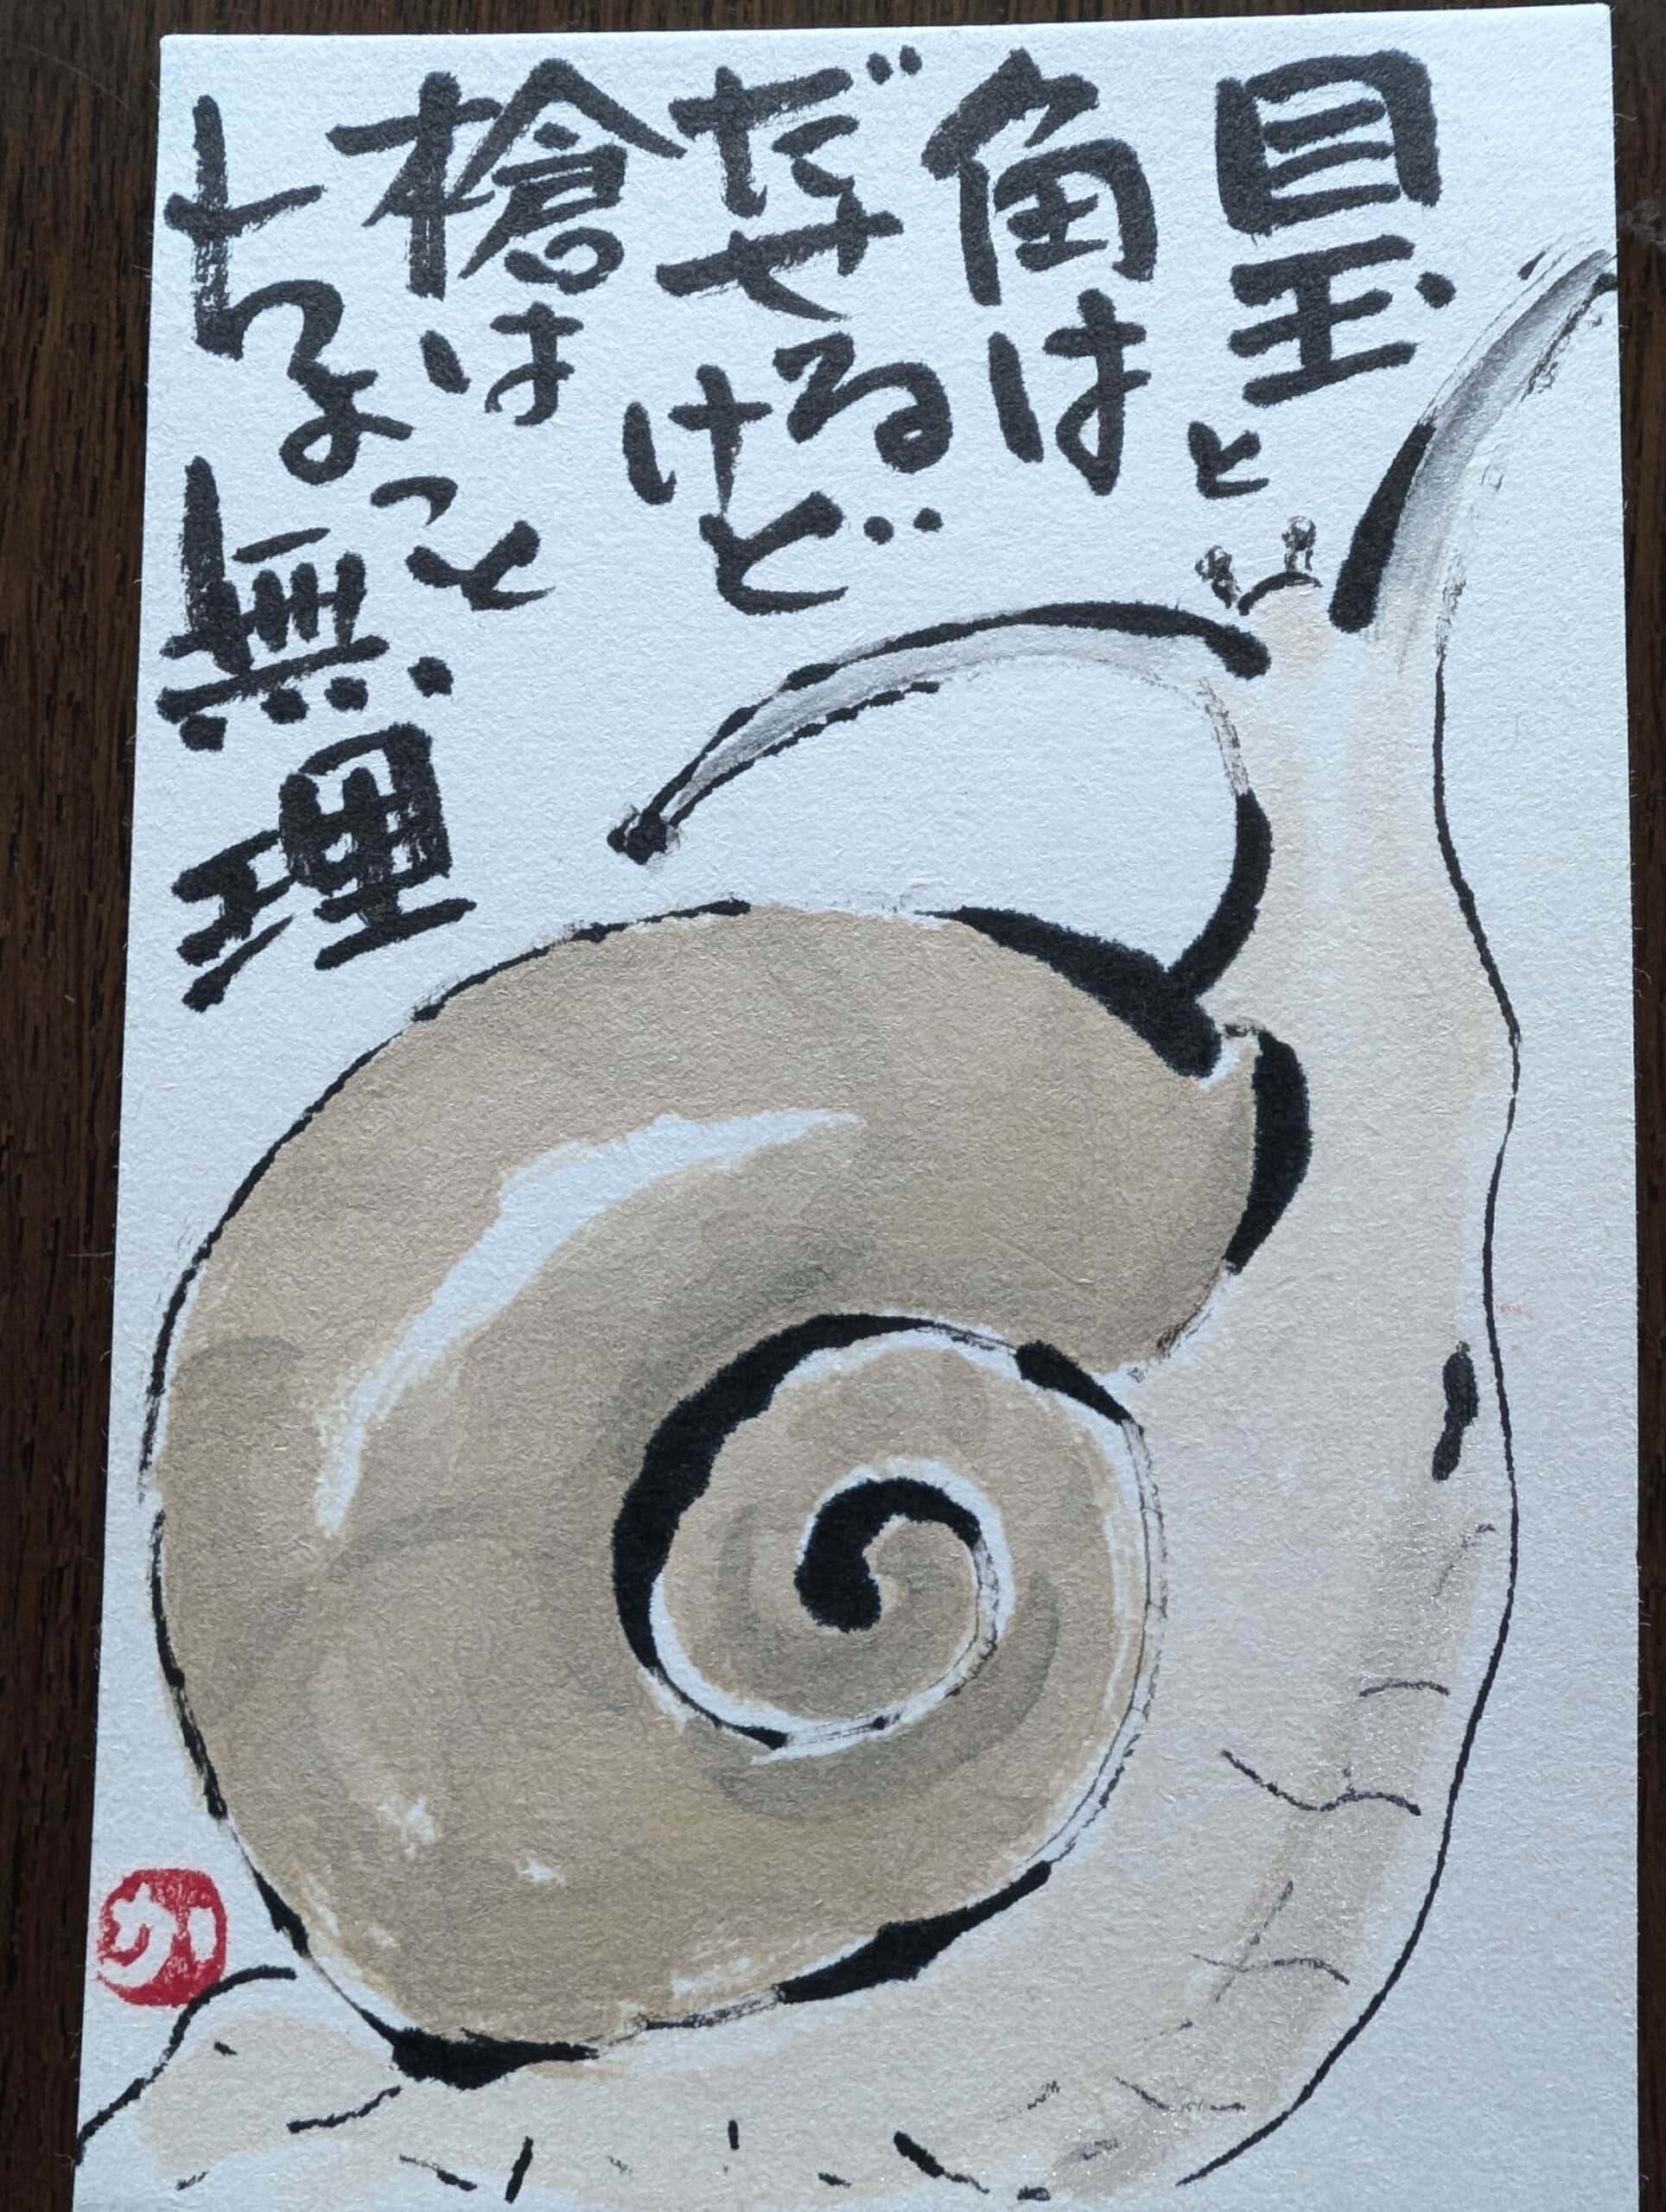 目玉と
角は
だせるけど
槍は
ちょっと
無理
の